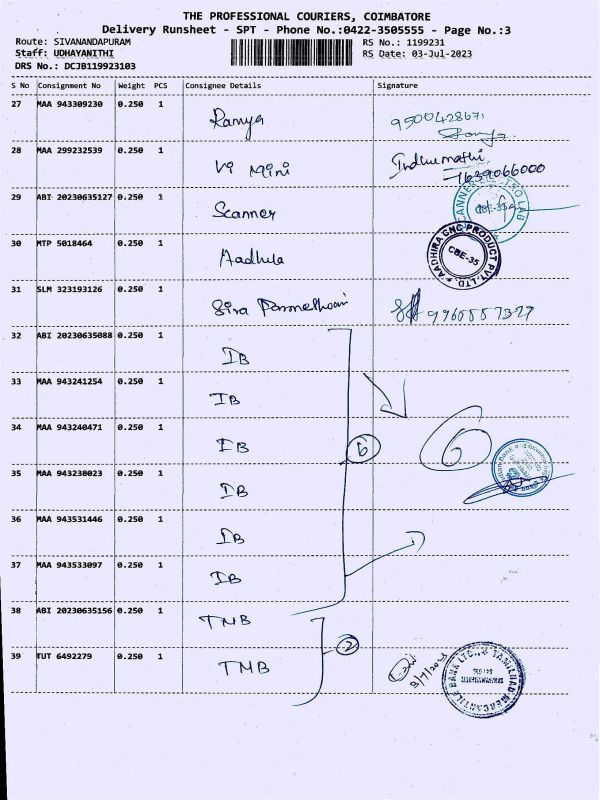 THE PROFESSIONAL COURIERS, COIMBATORE
Delivery Runsheet - SPT - Phone No.:0422-3505555 - Page No.:3
Route: SIVANANDAPURAM RS No.: 1199231
Staff: UDHAYANITHI RS Date: 03-Jul-2023
DRS No.: DCJB119923103
S No Consignment No Weight PCS Consignee Details Signature
27 MAA 943309230 0.250 1 Ramya 9500428671
Ramya
28 MAA 299232539 0.250 1 Vi Mini Indhumathi
7639066000
29 ABI 20230635127 0.250 1 Scanner
30 MTP 5018464 0.250 1 Aadhila AADHIRA CNC PRODUCT PVT. LTD. CBE-35
31 SLM 323193126 0.250 1 Siva
32 ABI 20230635088 0.250 1 IB
33 MAA 943241254 0.250 1 IB
34 MAA 943240471 0.250 1 IB 6 6
35 MAA 943238023 0.250 1 IB
36 MAA 943531446 0.250 1 IB
37 MAA 943533097 0.250 1 IB
38 ABI 20230635156 0.250 1 TMB 2
39 TUT 6492279 0.250 1 TMB 3/7/2023 TAMILNAD MERCANTILE BANK LTD.